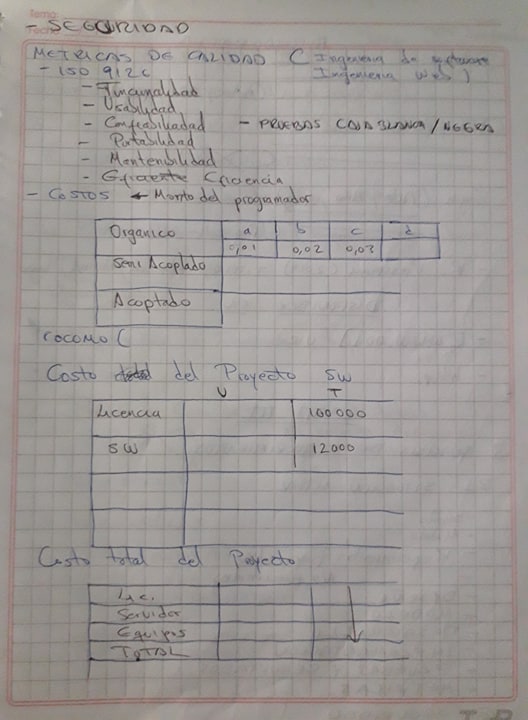 Tema:
Fecha
- SEGURIDAD
METRICAS DE CALIDAD ( Ingenieria de software
- ISO 9126 Ingenieria web )
- Funcionalidad
- Usabilidad
- Confiabiliadad - PRUEBAS CAJA BLANCA / NEGRA
- Portabilidad
- Mantenibilidad
- Eficiencia
- COSTOS ← Monto del programador
Organico a b c d
0,01 0,02 0,03
Semi Acoplado
Acoplado
COCOMO (
Costo del Proyecto SW
U T
Licencia 100 000
SW 12000
Costo total del Proyecto
Lic.
Servidor
Equipos
TOTAL